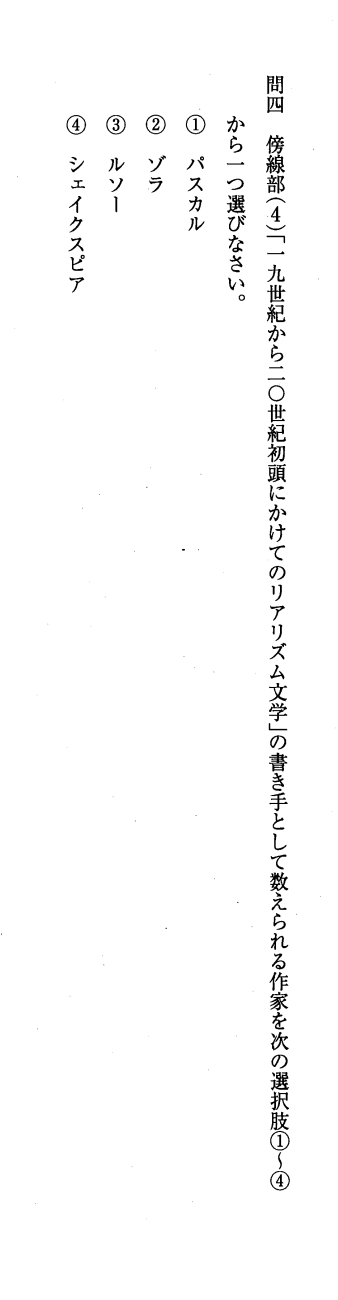 問四　傍線部（４）「一九世紀から二〇世紀初頭にかけてのリアリズム文学」の書き手として数えられる作家を次の選択肢①〜④
から一つ選びなさい。
①　パスカル
②　ゾラ
③　ルソー
④　シェイクスピア